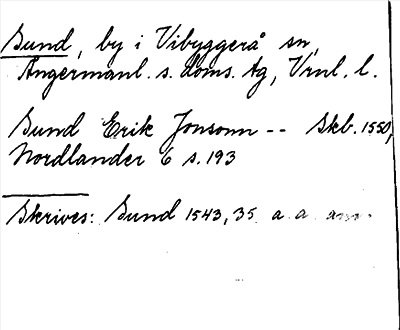 Sund, by i Vibyggerå sn,
Ångermanl. s. doms. tg, Vrnl. l.
Sund Erik Jonsonn -- Skb. 1550,
Nordlander 6 s. 193
Skrives: Sund 1543, 35 a. a.